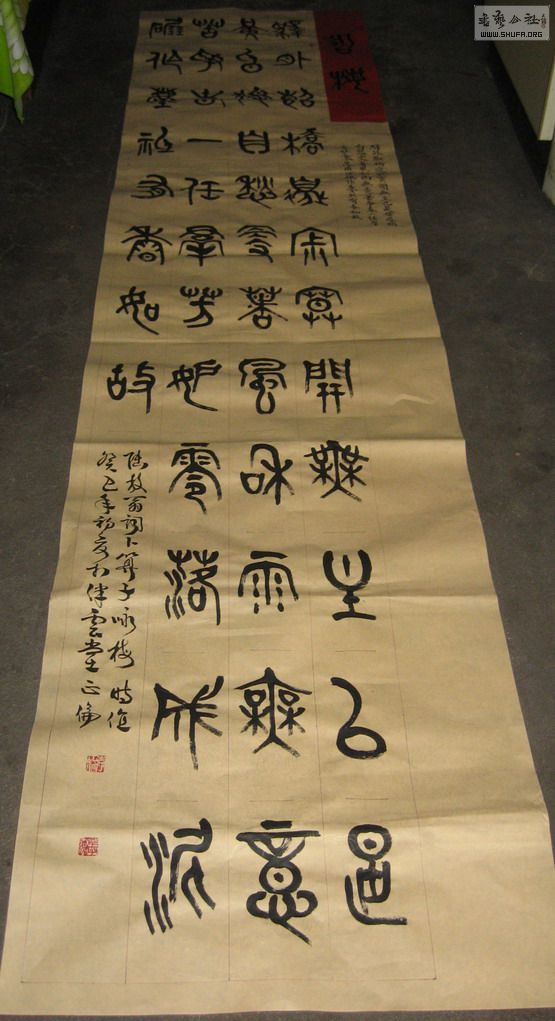 詠梅
驛外斷橋邊寂寞開無主已是
黃昏獨自愁更著風和雨無意
苦爭春一任群芳妒零落成泥
碾作塵祇有香如故
陸放翁詞卜算子咏梅時值
癸巳年初夏於伴雲堂正
书艺公社
WWW.SHUFA.ORG